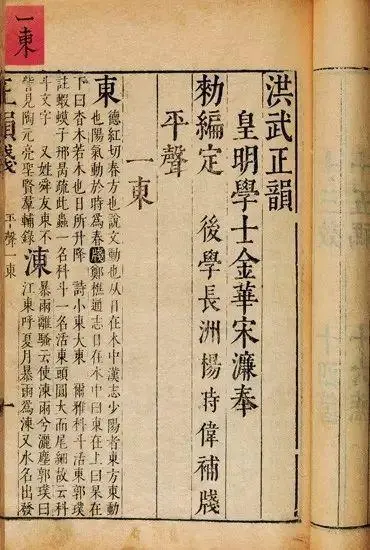 一東
洪武正韻
皇明學士金華宋濂奉
勑編定 後學長洲楊時偉補牋
平聲
一東
東 德紅切春方也說文動也从日在木中漢志少陽者東方東動
也陽氣動於時為春牋鄭樵通志日在木中曰東在上曰杲在
下曰杳木若木也日所升降 詩小東大東 爾雅科斗活東郭璞
註蝦蟆子邢昺疏此蟲一名科斗一名活東頭圓大而尾細故云科
斗文字 又姓舜友東不
訾見陶元亮聖賢羣輔錄
涷 暴雨離騷云使涷雨兮灑塵郭璞曰
江東呼夏月暴雨為涷又水名出發
正韻牋
平聲一東
一